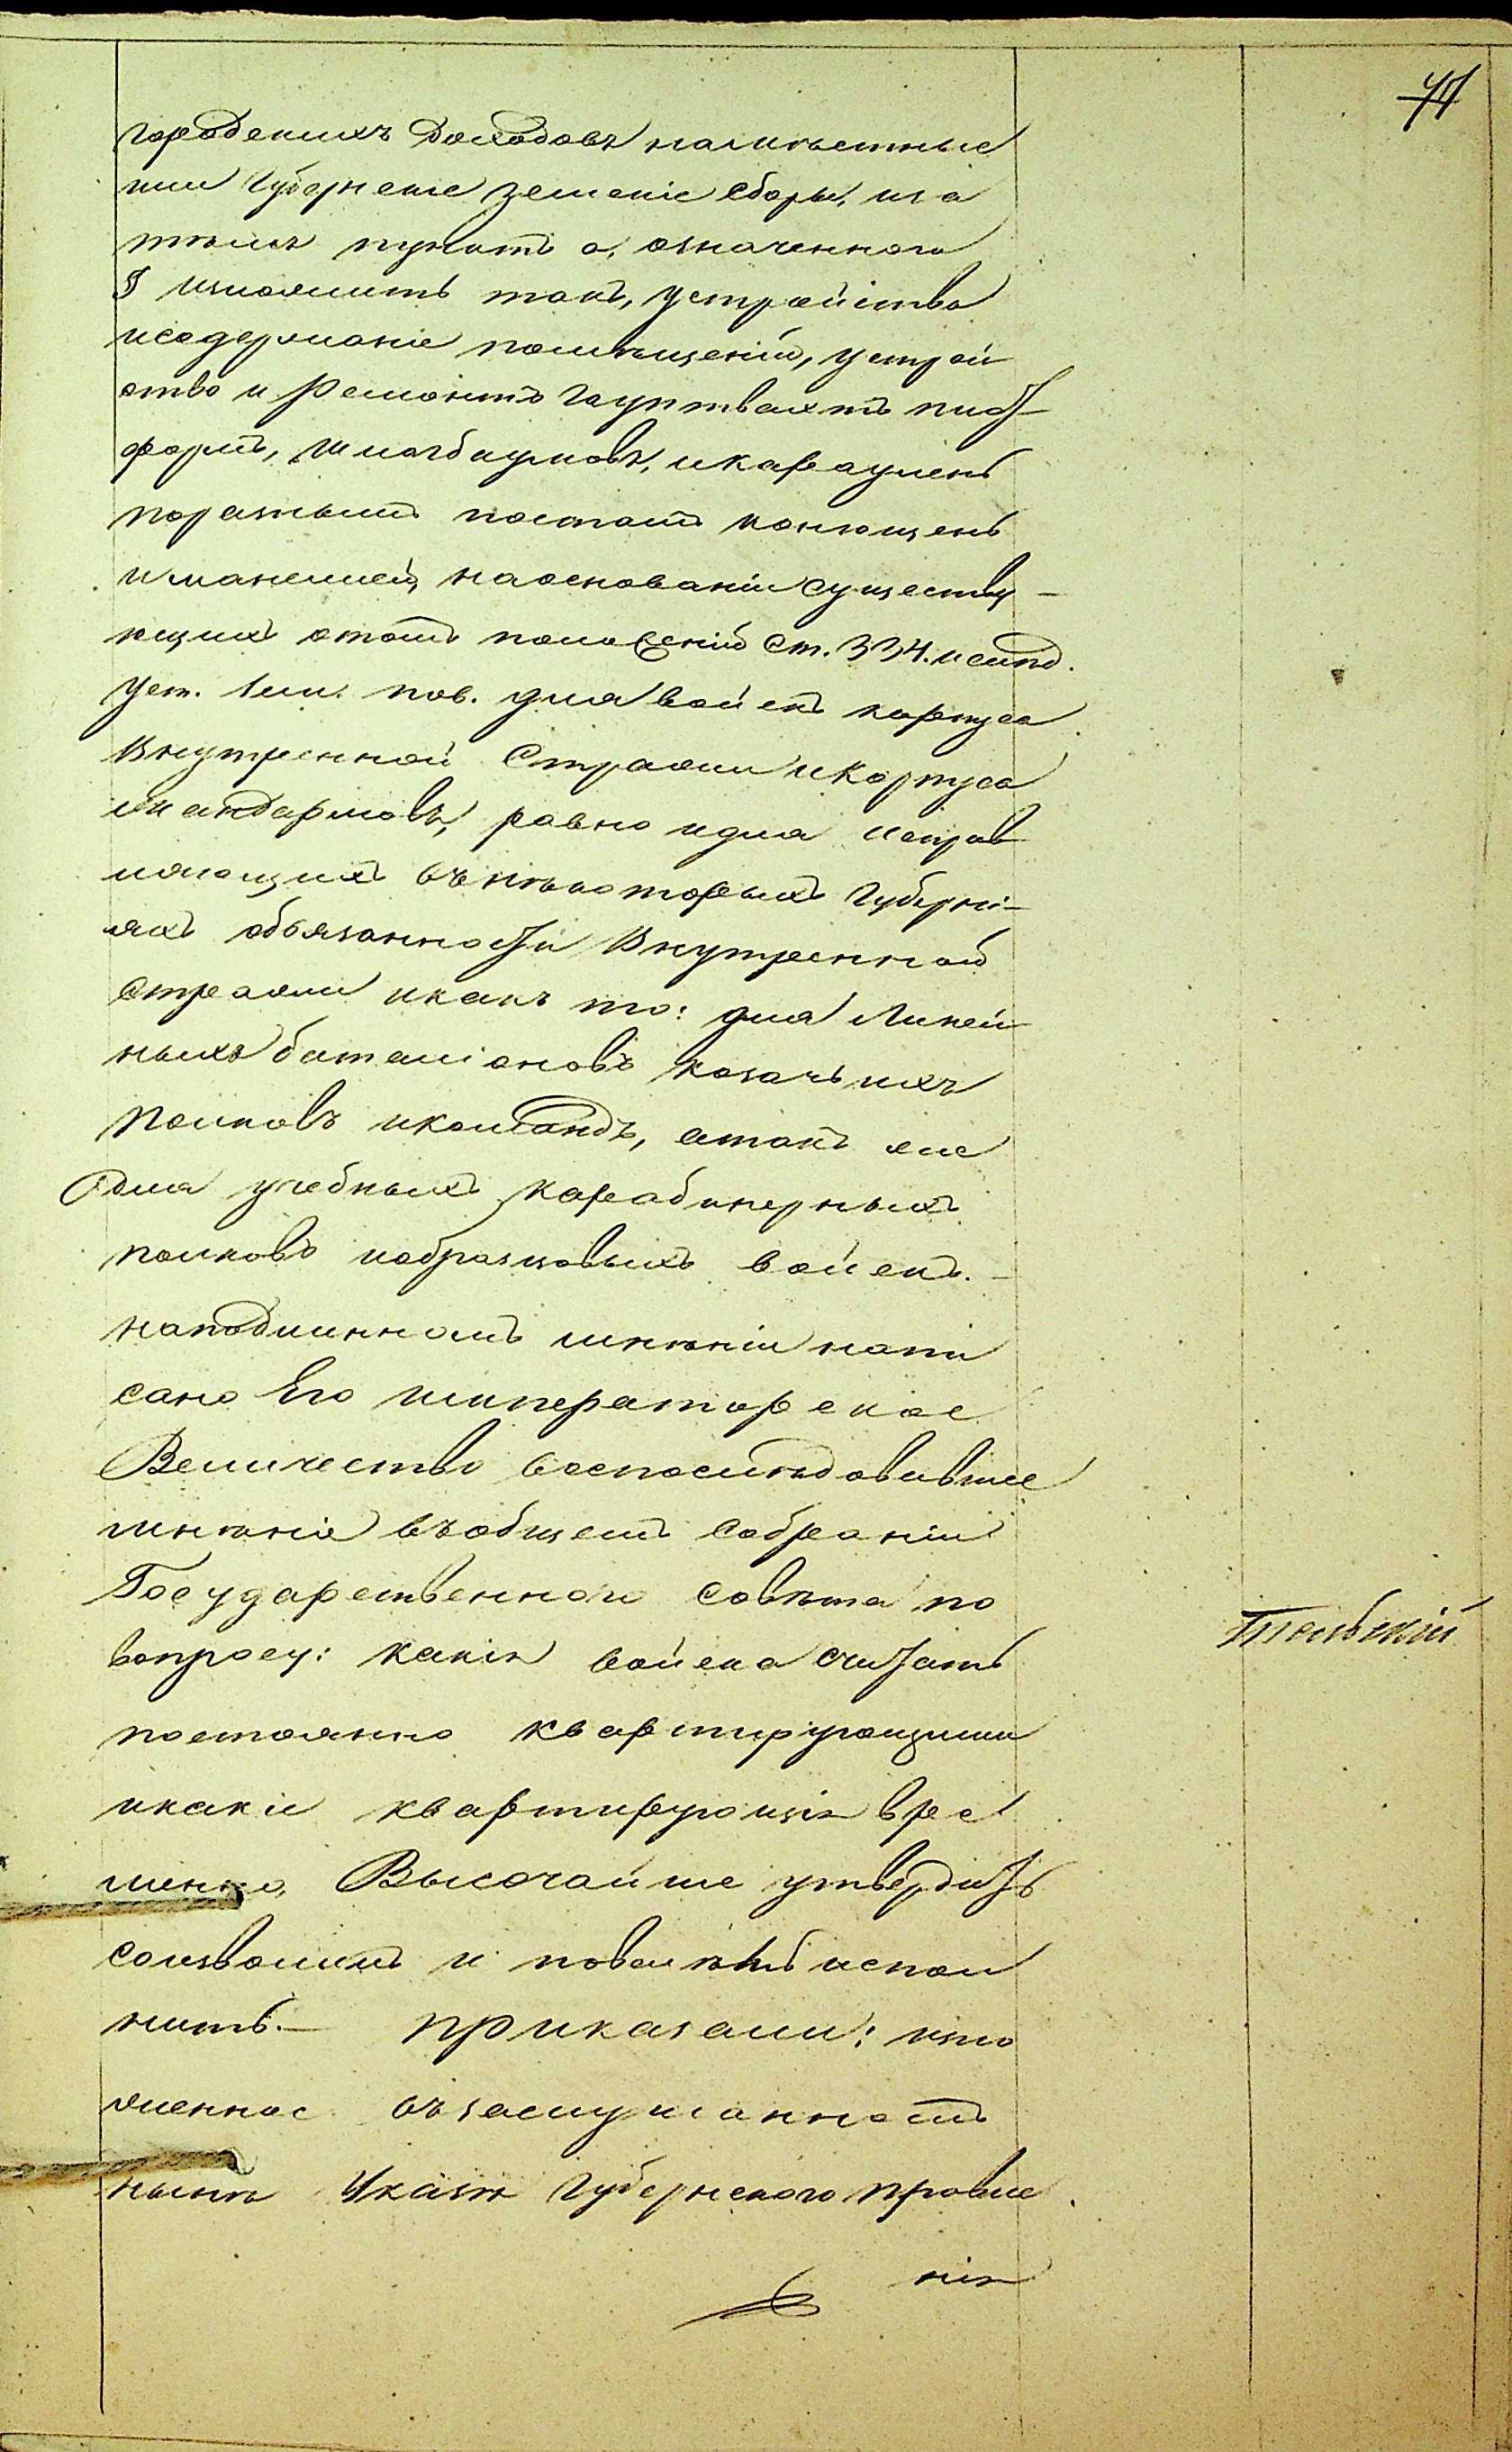 городскихъ доходовъ на местные
или Губернскіе земскіе сборы, и за
темъ пунктъ а, означеннаго
§ изложить такъ, устройство
и содержаніе помѣщеній, устрой
ство и ремонтъ гауптвахтъ плат
формъ, шлагбаумовъ, и караулень
по разнымъ постамъ конюшень
и манежей, на основаніи существу-
ющихъ о томъ положеній Ст. 334. и слѣд.
Уст. Зем. пов. для войскъ корпуса
Внутренней Стражи и Корпуса
жандармовъ, равно и для исправ
ляющихъ въ нѣкоторыхъ Губерні-
яхъ обязанности Внутренней
стражи и какъ то: для Линей
ныхъ баталіоновъ казачьихъ
полковъ и командъ, а такъ же
для учебныхъ карабинерныхъ
полковъ и образцовыхъ войскъ.-
на подлинномъ мнѣніи напи
сано Его императорское
Величество воспослѣдовавшее
мнѣніе въ общемъ собраніи
Государственнаго совѣта по
вопросу: какія войска считать
постоянно квартирующими
и какіе квартирующія вре
менно, Высочайше утвердить
соизволилъ и повелѣлъ испол
нить.- приказали: изло
женное въ заслушанномъ
нынѣ Указѣ Губернскаго правле
нія